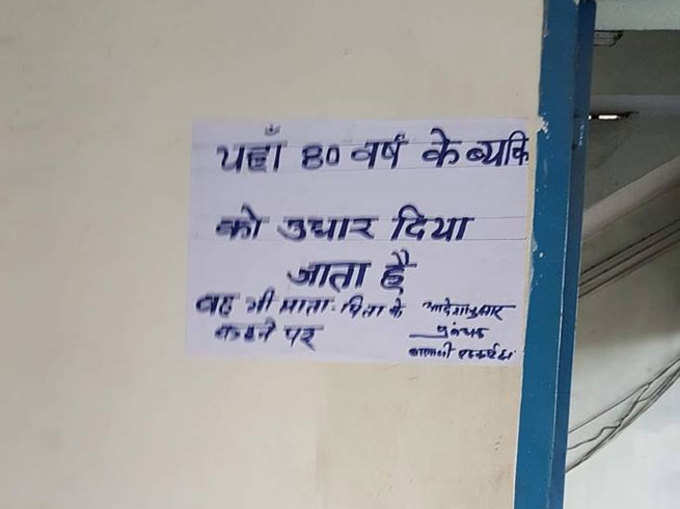 यहाँ 80 वर्ष के ब्यक्ति
को उधार दिया
जाता है
वह भी माता-पिता के
कहने पर
आदेशानुसार
प्रबंधक